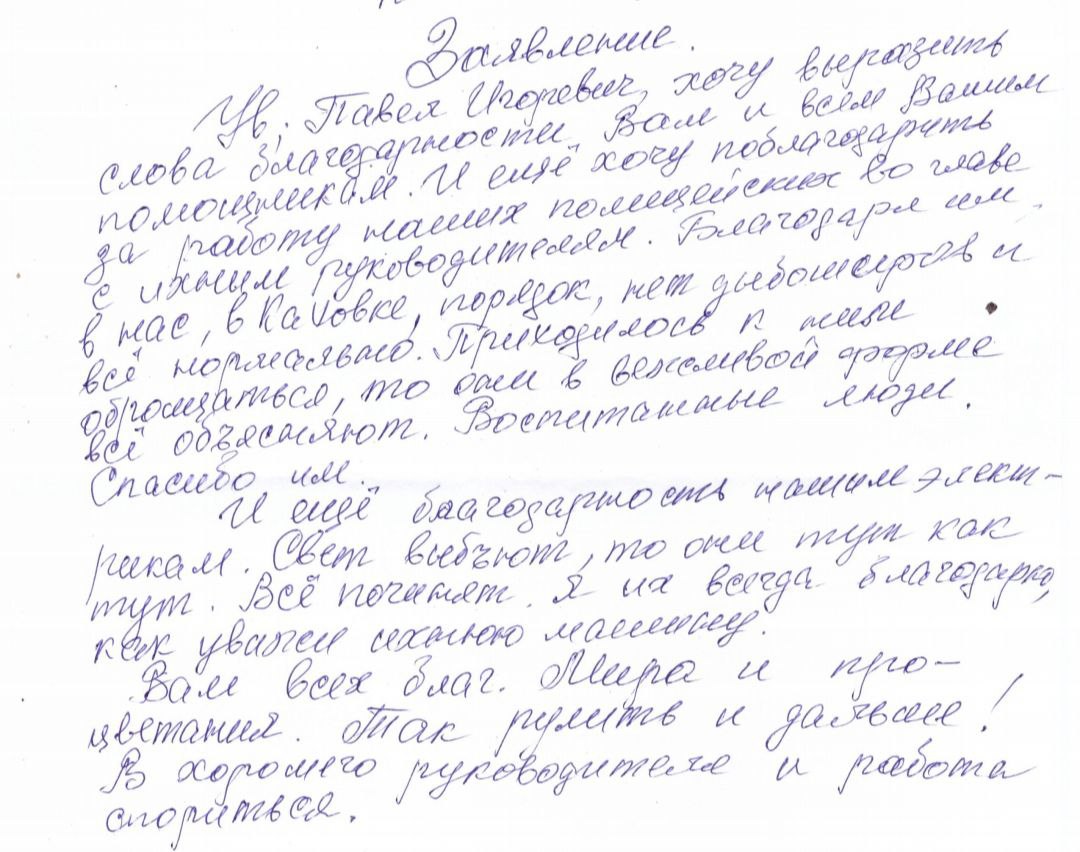 Заявление.
Ув. Павел Игоревич, хочу выразить
слова благодарности Вам и всем Вашим
помощникам. И ещё хочу поблагодарить
за работу наших полицейских во главе
с ихним руководителям. Благодаря им
в нас, в Каховке, порядок, нет дыбоширов и
всё нормально. Приходилось к ним
оброщаться, то они в вежливой форме
всё объясняют. Воспитанные люди.
Спасибо им.
И ещё благодарность нашим элект-
рикам. Свет выбъют, то они тут как
тут. Всё починят. Я их всегда благодарю,
как увижу ихнюю машину.
Вам всех благ. Мира и про-
цветания. Так рулить и дальше!
В хорошего руководителя и работа
спориться.